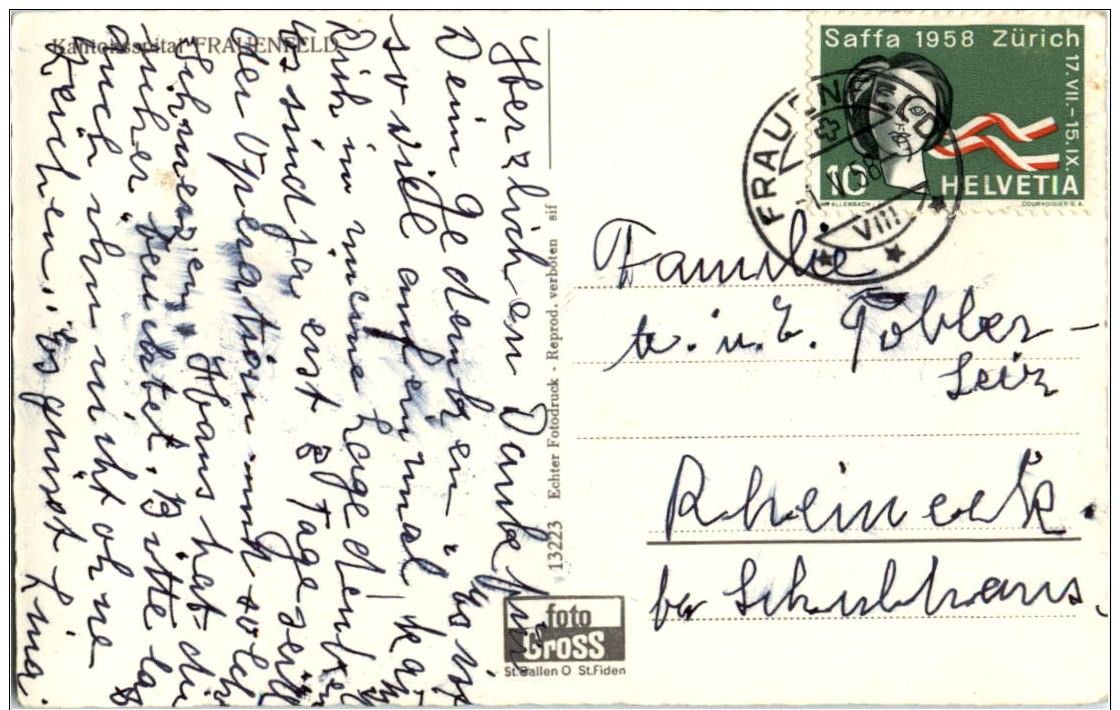 Kantonsspital FRAUENFELD
Herzlichen Dank für
Dein gedenken. Das ist
so viel auf einmal kan
Dich in meine Lage denken
es sind ja erst 8 Tage seit
der Operation und solch
Schmerzen. Hans hat die
sicher berichtet. Bitte las
auch ihn nicht ohne
Zeichen. Es grüsst Lina.
13223 Echter Fotodruck - Reprod. verboten sif
foto
GROSS
St.Gallen O St.Fiden
Saffa 1958 Zürich
17.VII.-15.IX.
10 HELVETIA
COURVOISIER S.A.
FRAUENFELD
VIII
Familie
Tobler -
Rheineck.
bei Schulhaus.